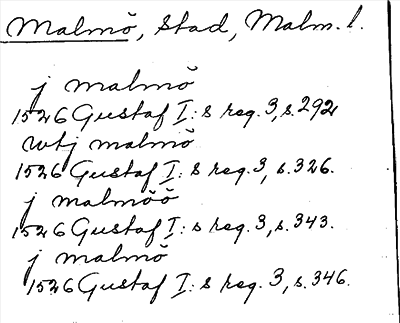 Malmö, Stad, Malm. l.
j malmö
1526 Gustaf I: s reg. 3, s. 292
wtj malmö
1526 Gustaf I: s reg. 3, s. 326.
j malmöö
1526 Gustaf I: s reg. 3, s. 343.
j malmö
1526 Gustaf I: s reg. 3, s. 346.